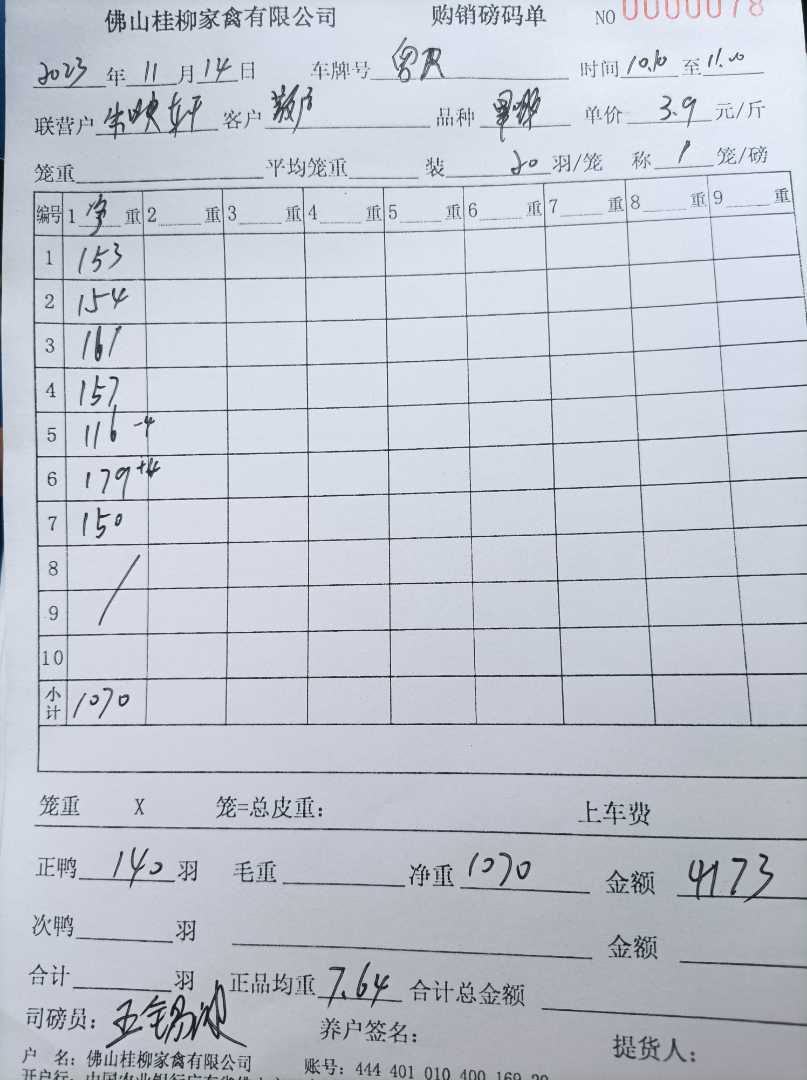 佛山桂柳家禽有限公司 购销磅码单 NO 0000078
2023年11月14日 车牌号 时间10.10至11.00
联营户 朱映轩 客户 散户 品种 单价 3.9 元/斤
笼重 平均笼重 装 20 羽/笼 称 1 笼/磅
编号 1 净 重 2 重 3 重 4 重 5 重 6 重 7 重 8 重 9 重
1 153
2 154
3 161
4 157
5 116 -4
6 179 +4
7 150
8
9
10
小计 1070
笼重 X 笼=总皮重: 上车费
正鸭 140 羽 毛重 净重 1070 金额 4173
次鸭 羽 金额
合计 羽 正品均重 7.64 合计总金额
司磅员: 养户签名: 提货人:
户 名: 佛山桂柳家禽有限公司 账号: 444 401 010 400 169 29
开户行: 中国农业银行